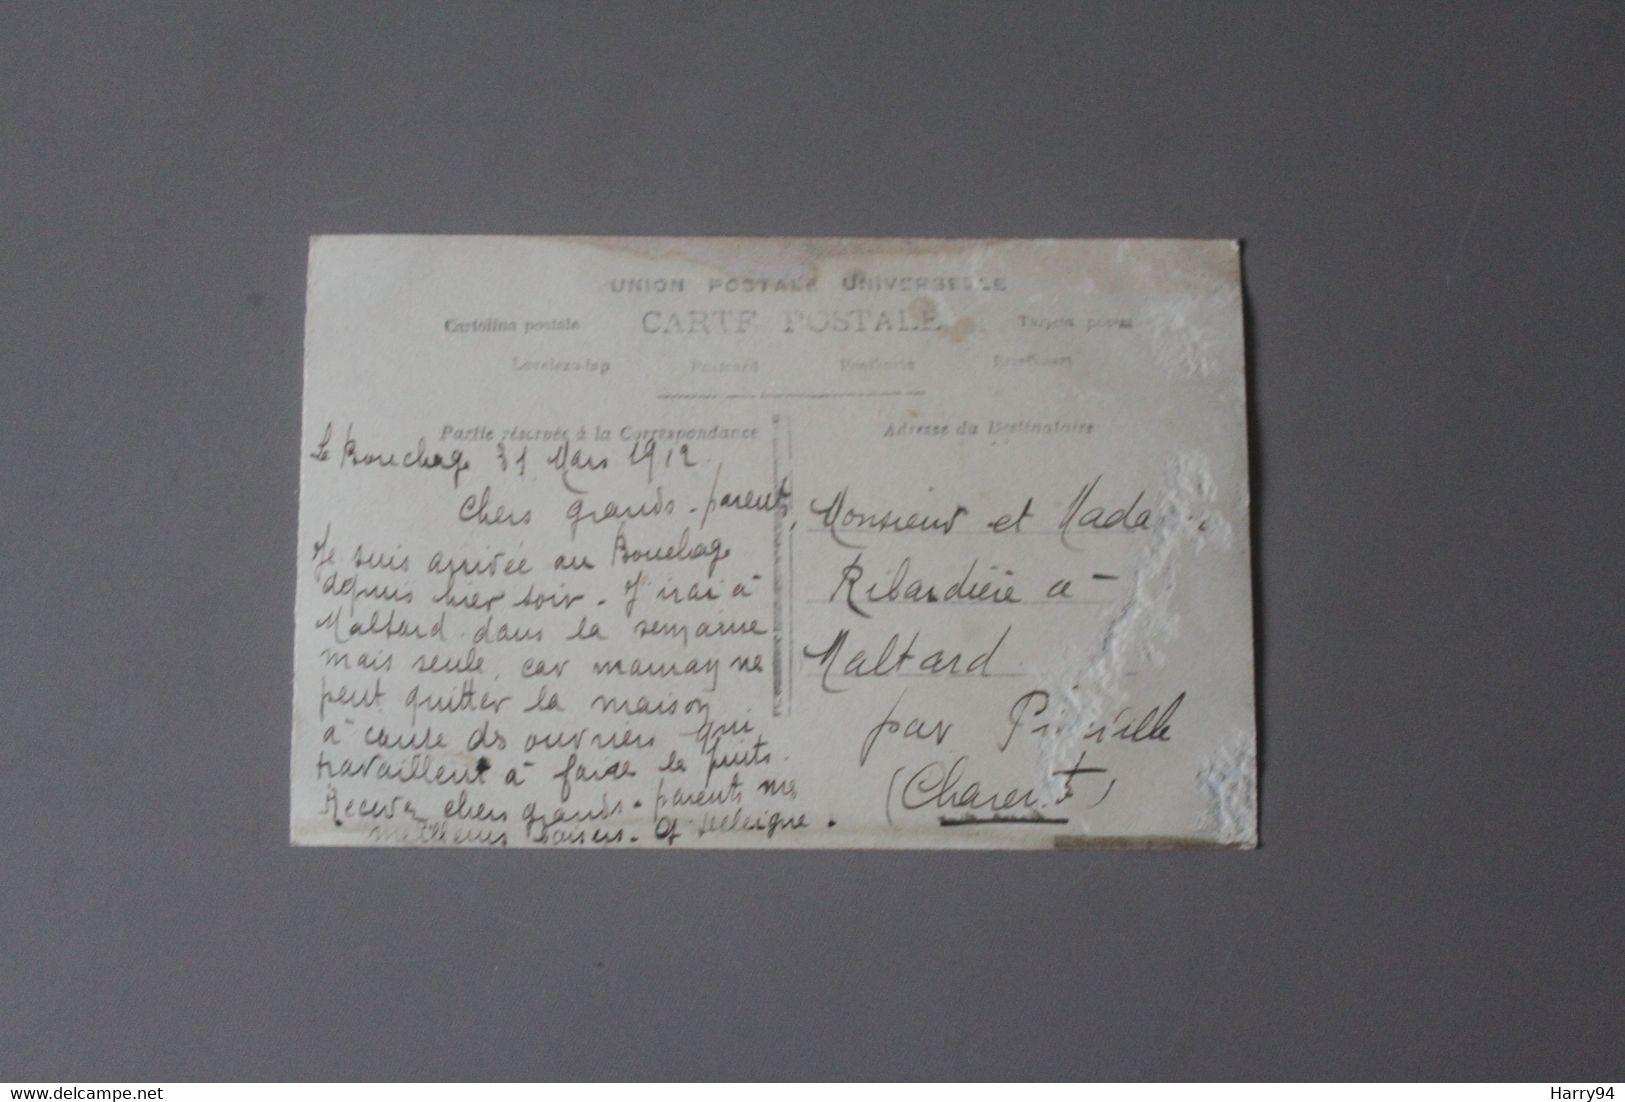 UNION POSTALE UNIVERSELLE
Cartolina postale CARTE POSTALE
Levelezo-lap Postcard Postkarte Briefkaart
Partie réservée à la Correspondance
Adresse du Destinataire
Le Bouchage 31 Mars 1912.
Chers grands-parents,
Je suis arrivée au Bouchage
depuis hier soir. J'irai à
Maltard dans la semaine
mais seule, car maman ne
peut quitter la maison
à cause des ouvriers qui
travaillent à faire le puits.
Recevez chers grands-parents mes
meilleurs baisers.
Monsieur et Mada
Ribardière à
Maltard
par
(Charente)
www.delcampe.net
Harry94